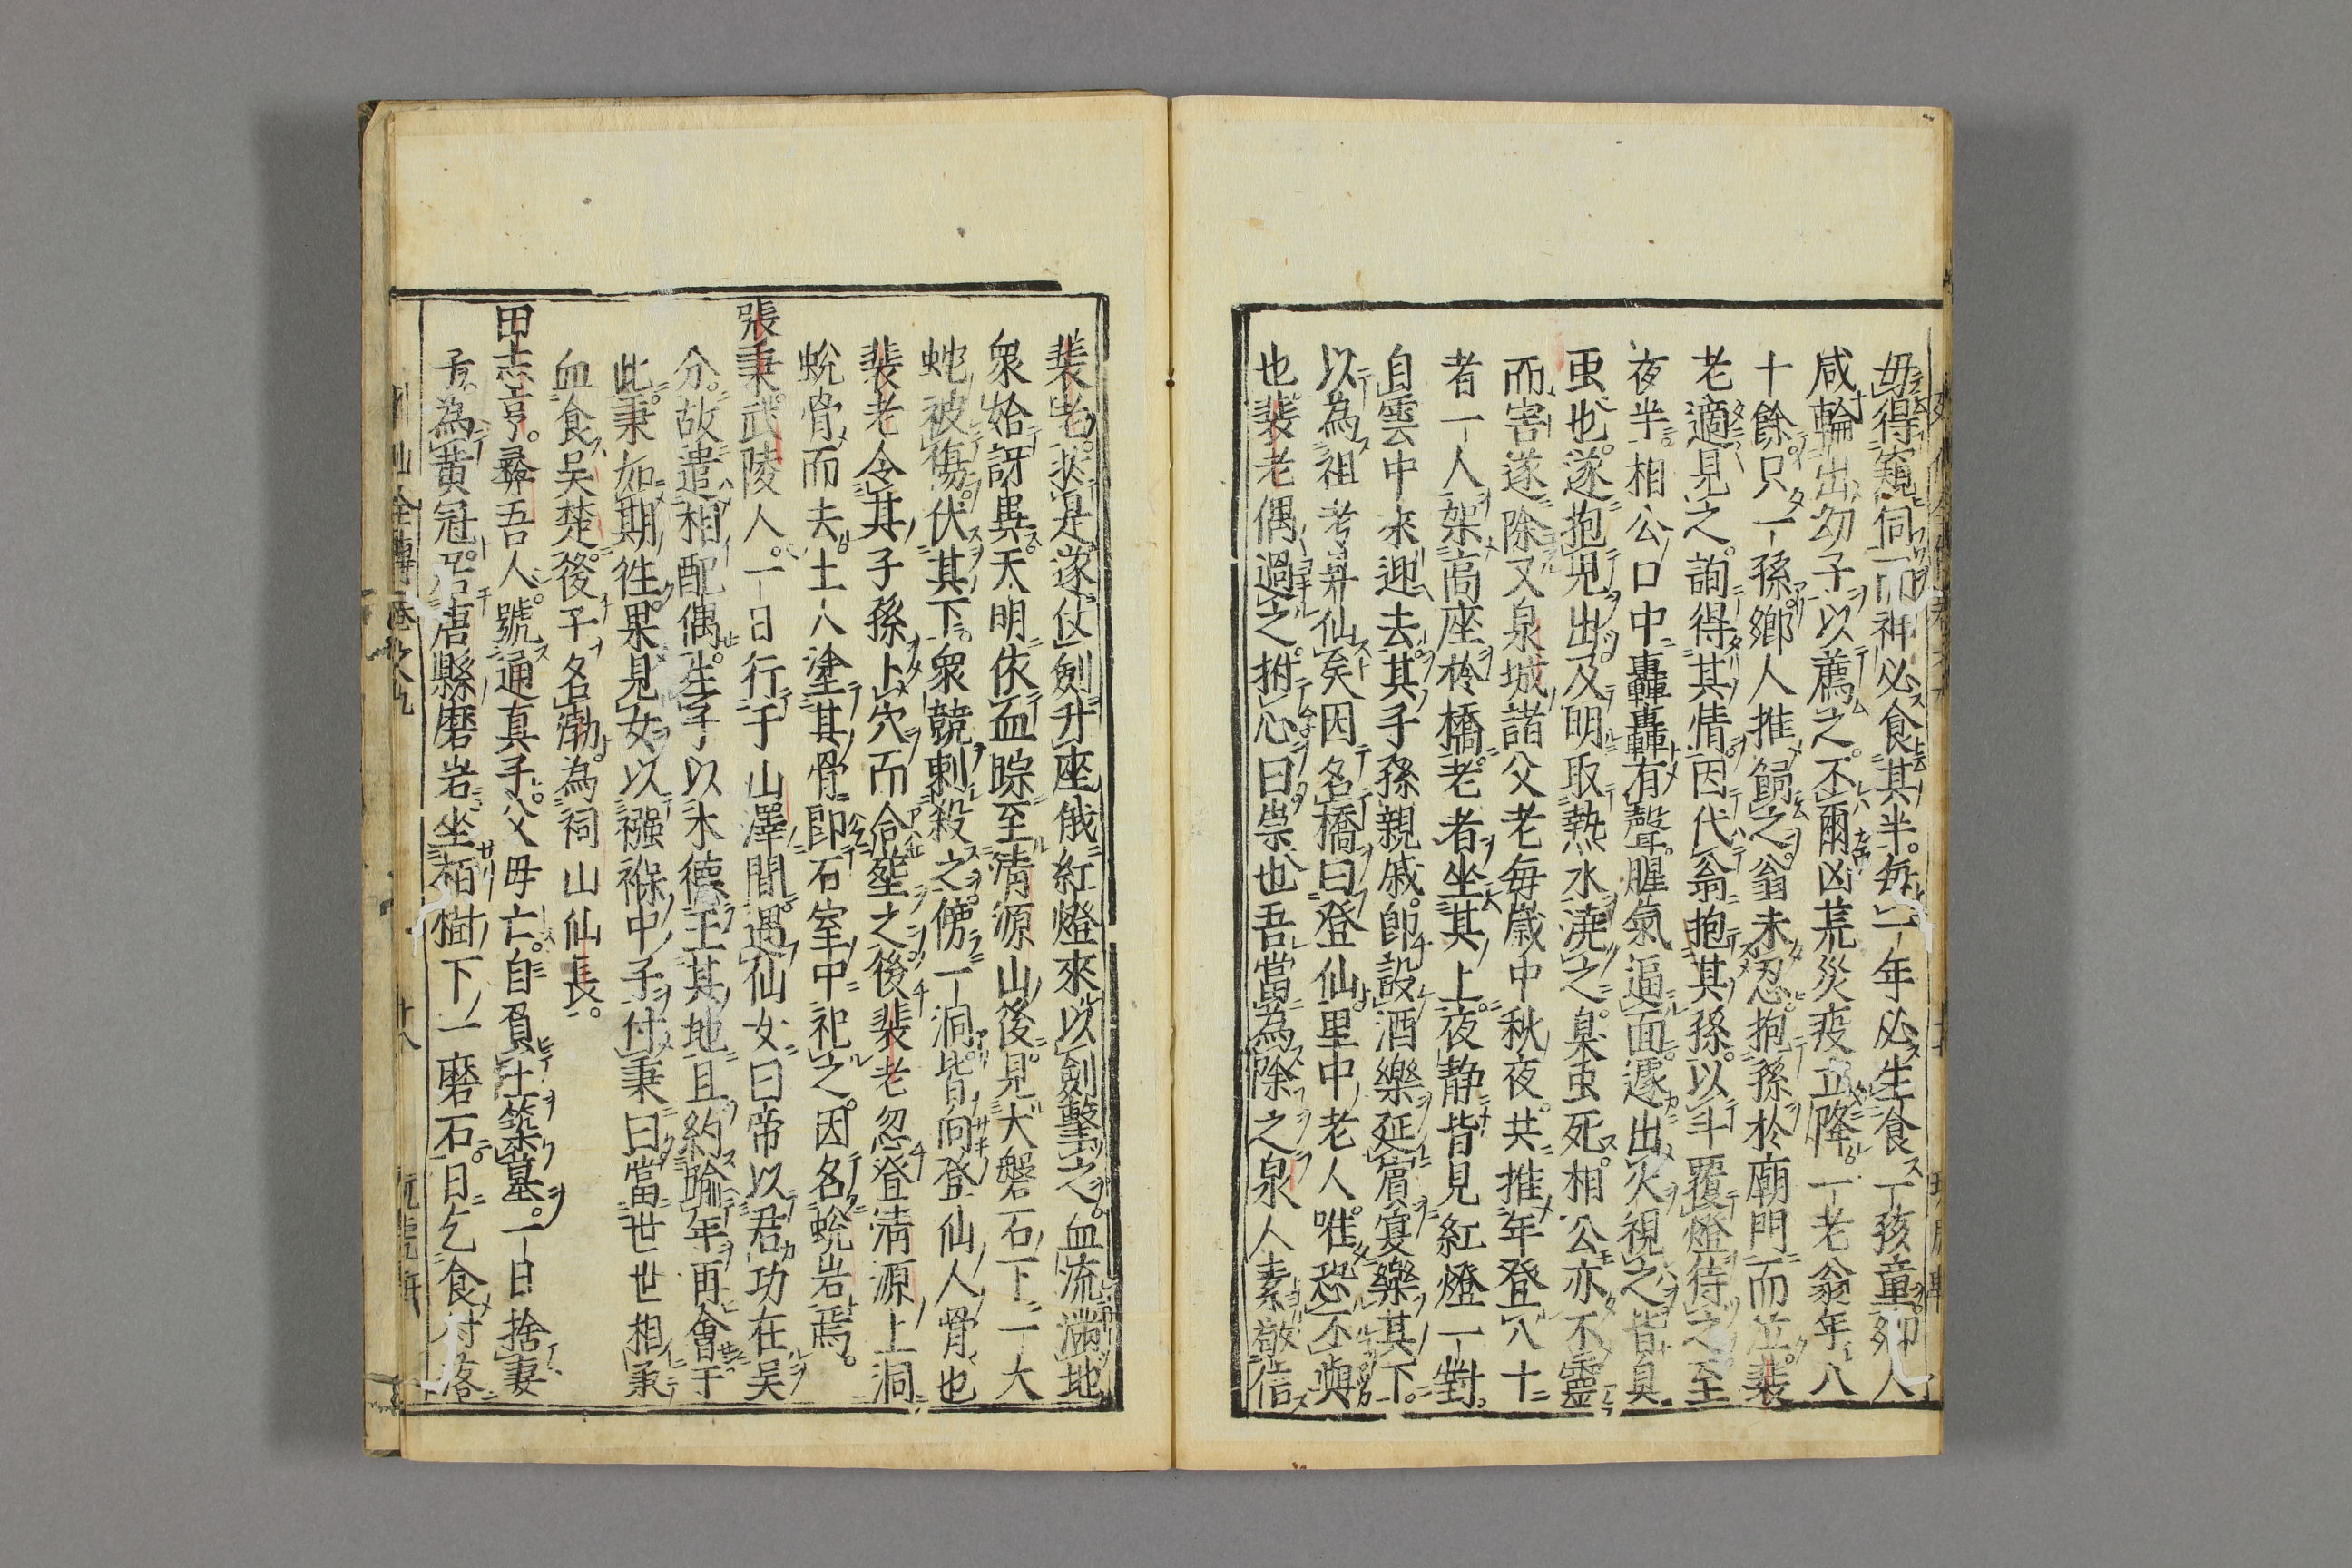 毋得窺伺而神必食其半。每一年必生食一孩童。鄉人
咸輪出幼子以薦之。不爾凶荒災疫立降。一老翁年八
十餘只一孫。鄉人推歸之。翁未忍。抱孫於廟門而泣。裴
老適見之。詢得其情。因代翁抱其孫。以斗覆燈待之。至
夜半。相公口中轟轟有聲。腥氣逼面。遽出火視之。皆臭
虫也。遂抱兒出。及明取熱水澆之。臭虫死。相公亦不靈
而害遂除。又泉城諸父老每歲中秋夜。共推年登八十
者一人。架高座於橋。老者坐其上。夜静皆見紅燈一對。
自雲中來迎去。其子孫親戚。卽設酒樂延賓宴樂其下。
以為祖考昇仙矣。因名橋曰登仙。里中老人。唯恐不與
也。裴老偶過之。拊心曰。祟也。吾當為除之。泉人素敬信
裴老。於是遂仗劍升座。俄紅燈來。以劍擊之。血流滿地
衆始訝異。天明依血踪至清源山後。見大磐石下一大
蛇被傷。伏其下。衆競刺殺之。傍一洞。皆向登仙人骨也
裴老令其子孫卜穴而合塟之。後裴老忽登清源上洞
蛻骨而去。土人塗其骨。卽石室中祀之。因名蛻岩焉。
張秉。武陵人。一日行于山澤間。遇仙女曰。帝以君功在吴
分。故遣相配偶。生子以木德王其地。且約踰年再會于
此。秉如期往。果見女以襁褓中子付秉曰。當世世相承
血食吴楚。後子名渤。為祠山仙長。
甲志亨。彞吾人。號通真子。父母亡。自負土築墓。一日捨妻
子。為黄冠。居唐縣磨岩。坐栢樹下一磨石。日乞食村落